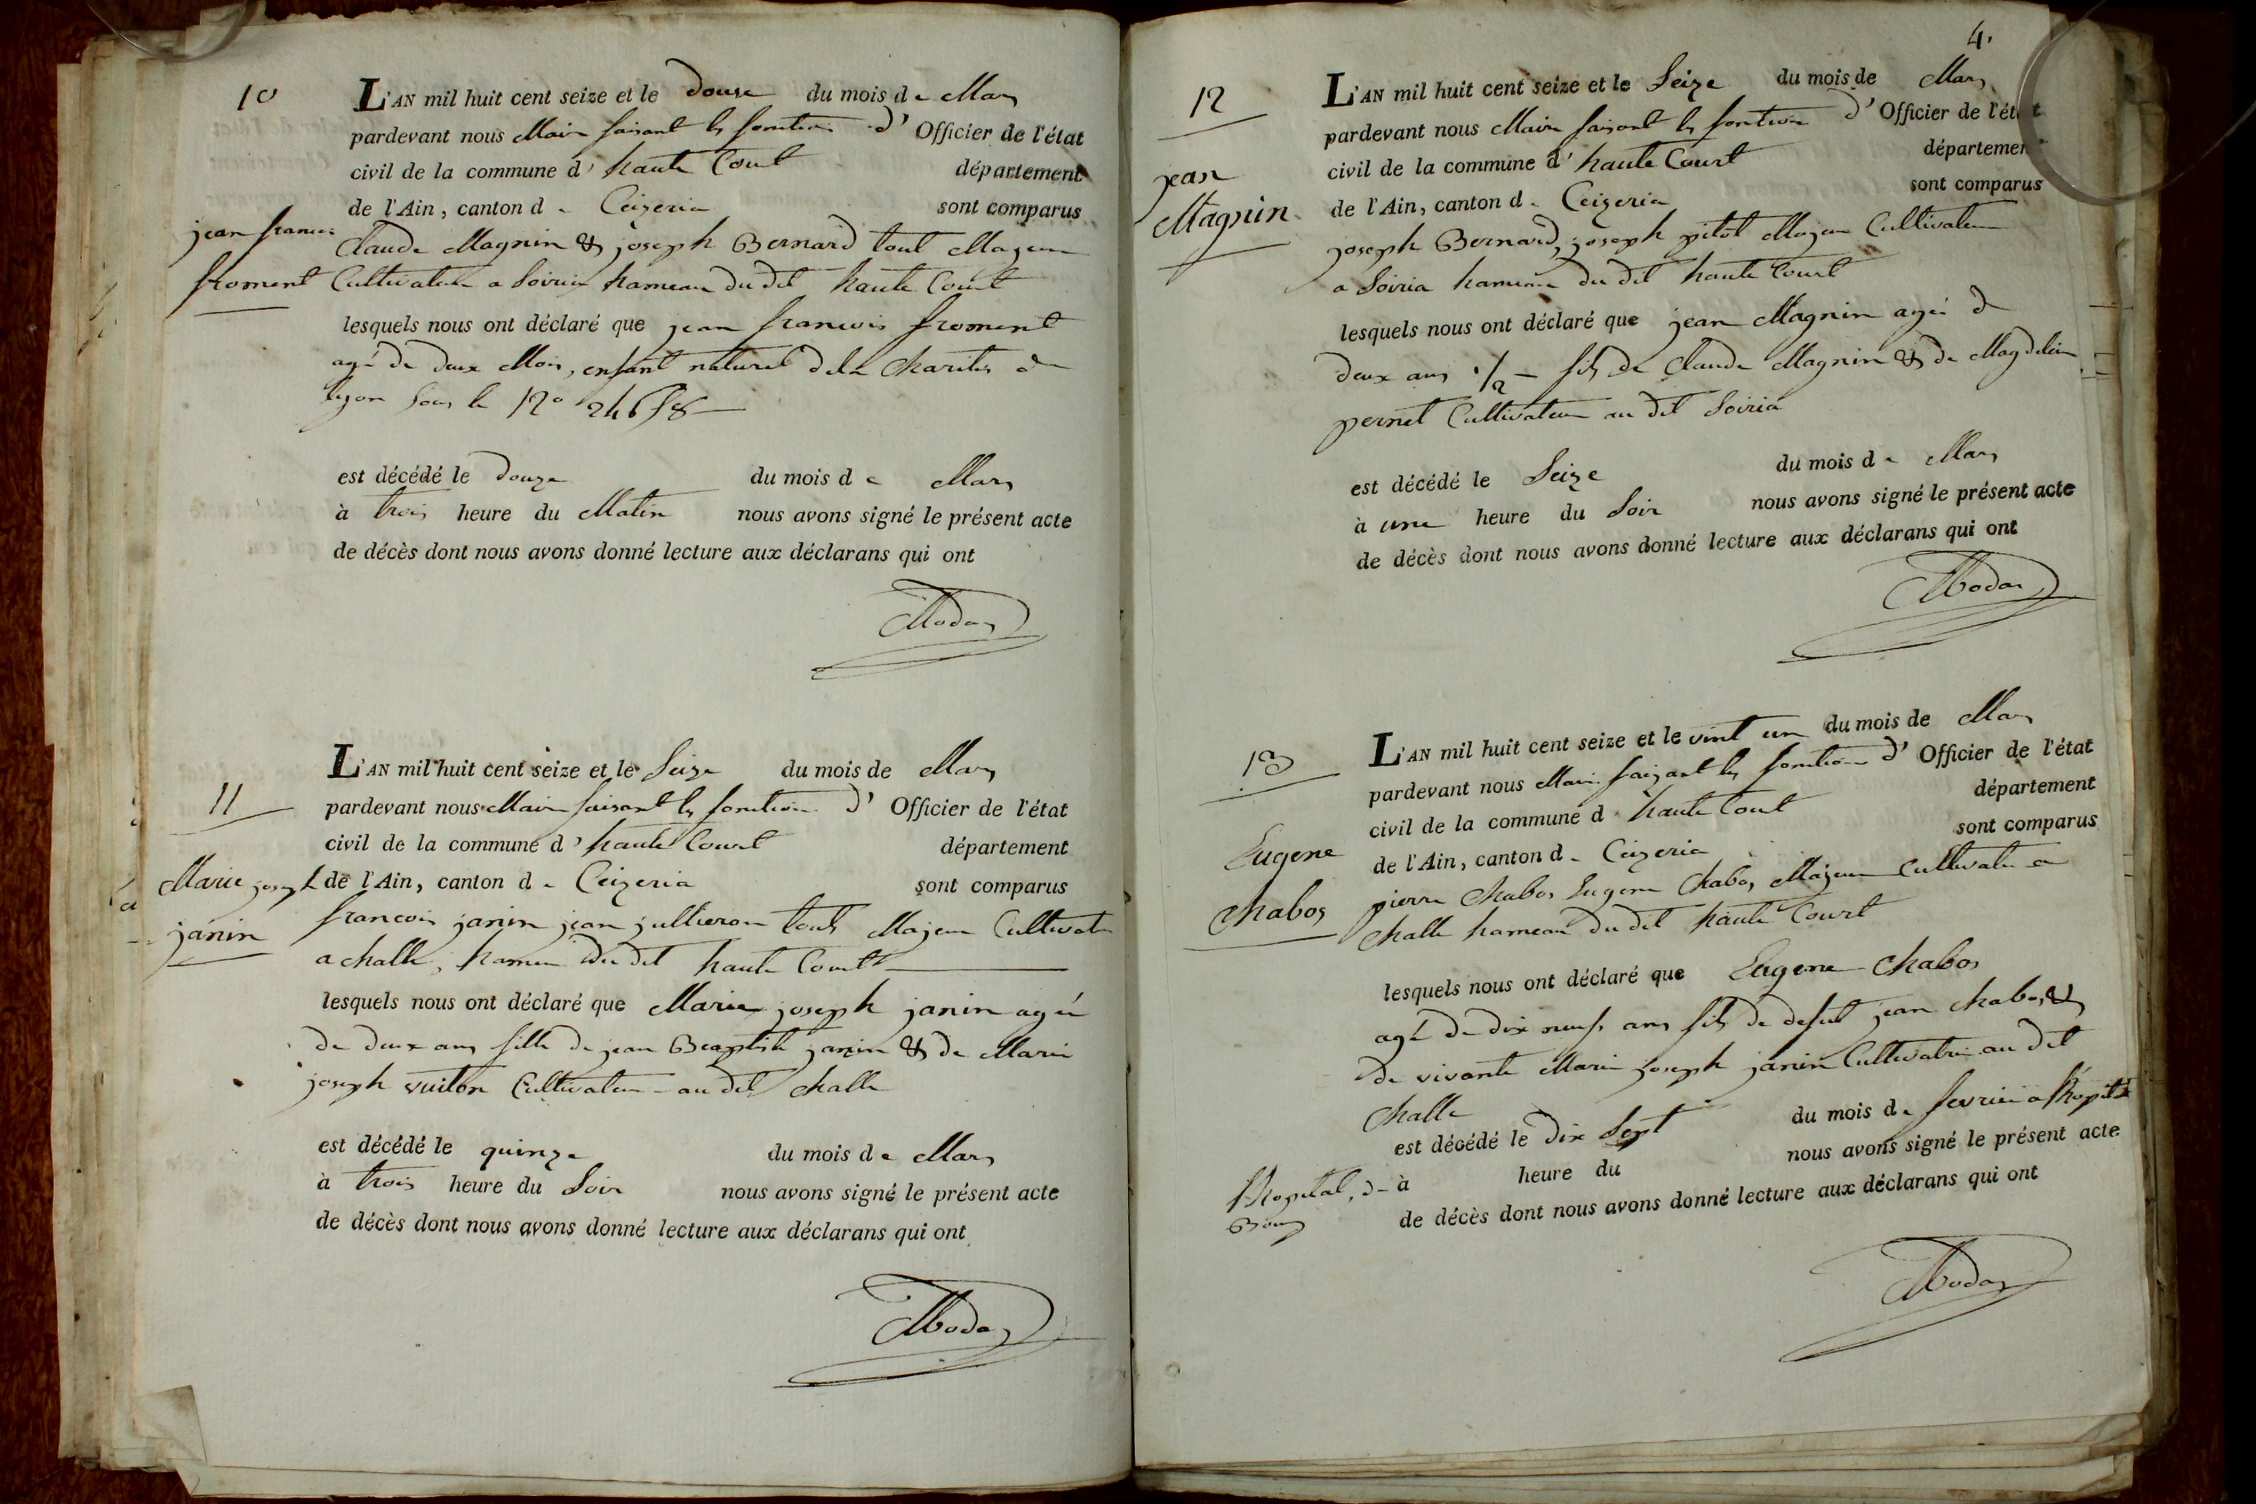 10
L'AN mil huit cent seize et le douse du mois de Mars
pardevant nous Maire faisant les fonction d' Officier de l'état
civil de la commune d' haute Court département
de l'Ain, canton de Ceizeria sont comparus
jean francois
froment
Claude Magnin & joseph Bernard tout Majeur
Cultivateur a Soiria hameau du dit haute Court
lesquels nous ont déclaré que jean francois froment
agé de deux Mois, enfant naturel de la Charités de
lyon sous le N°
est décédé le douze du mois de Mars
à trois heure du Matin nous avons signé le présent acte
de décès dont nous avons donné lecture aux déclarans qui ont
11
L'AN mil huit cent seize et le Seize du mois de Mars
pardevant nous Maire faisant les fonction d' Officier de l'état
civil de la commune d' haute Court département
Marie joseph
janin
de l'Ain, canton de Ceizeria sont comparus
francois janin jean jullieron touts Majeur Cultivate
a challe, hameau du dit haute Court
lesquels nous ont déclaré que Marie joseph janin agée
de deux ans fille de jean Beaptiste janin & de Marie
joseph vuiton Cultivateur au dit challe
est décédé le quinze du mois de Mars
à trois heure du Soir nous avons signé le présent acte
de décès dont nous avons donné lecture aux déclarans qui ont
4.
12
jean
Magnin
L'AN mil huit cent seize et le Seize du mois de Mars
pardevant nous Maire faisant les fonction d' Officier de l'état
civil de la commune d' haute Court département
de l'Ain, canton de Ceizeria sont comparus
joseph Bernard, joseph pitot Majeur Cultivateur
a Soiria hameau du dit haute Court
lesquels nous ont déclaré que jean Magnin agée de
deux ans 1/2 – fils de Claude Magnin & de Magdelein
pernet Cultivateur au dit Soiria
est décédé le Seize du mois de Mars
à une heure du Soir nous avons signé le présent acte
de décès dont nous avons donné lecture aux déclarans qui ont
13
Eugene
chabos
L'AN mil huit cent seize et le vint un du mois de Mars
pardevant nous Maire faisant les fonction d' Officier de l'état
civil de la commune d haute Court département
de l'Ain, canton de Ceizeria sont comparus
pierre chabos Eugene chabos Majeur Cultivate a
challe hameau du dit haute Court
lesquels nous ont déclaré que Eugene chabos
agé de dix neuf ans fils de defut jean chabos &
de vivante Marie joseph janin Cultivatrice au dit
challe
est décédé le dix Sept du mois de fevrier a lhopital
lhopital, de
Bourg
à heure du nous avons signé le présent acte
de décès dont nous avons donné lecture aux déclarans qui ont